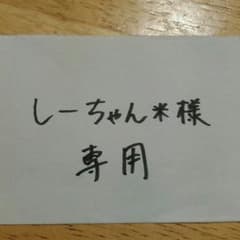 しーちゃん米様
専用